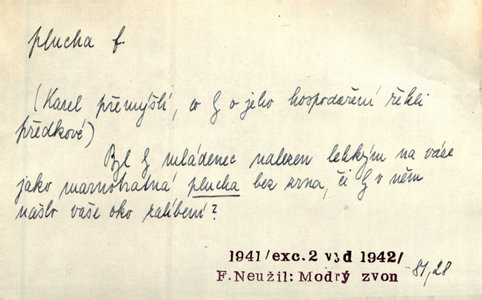 plucha f.
(Karel přemýšlí, co by o jeho hospodaření řekli
předkové)
Byl by mládenec nalezen lehkým na váze
jako marnotratná plucha bez zrna, či by v něm
našlo vaše oko zalíbení?
1941/exc.2 vyd 1942/
F.Neužil: Modrý zvon -81,28